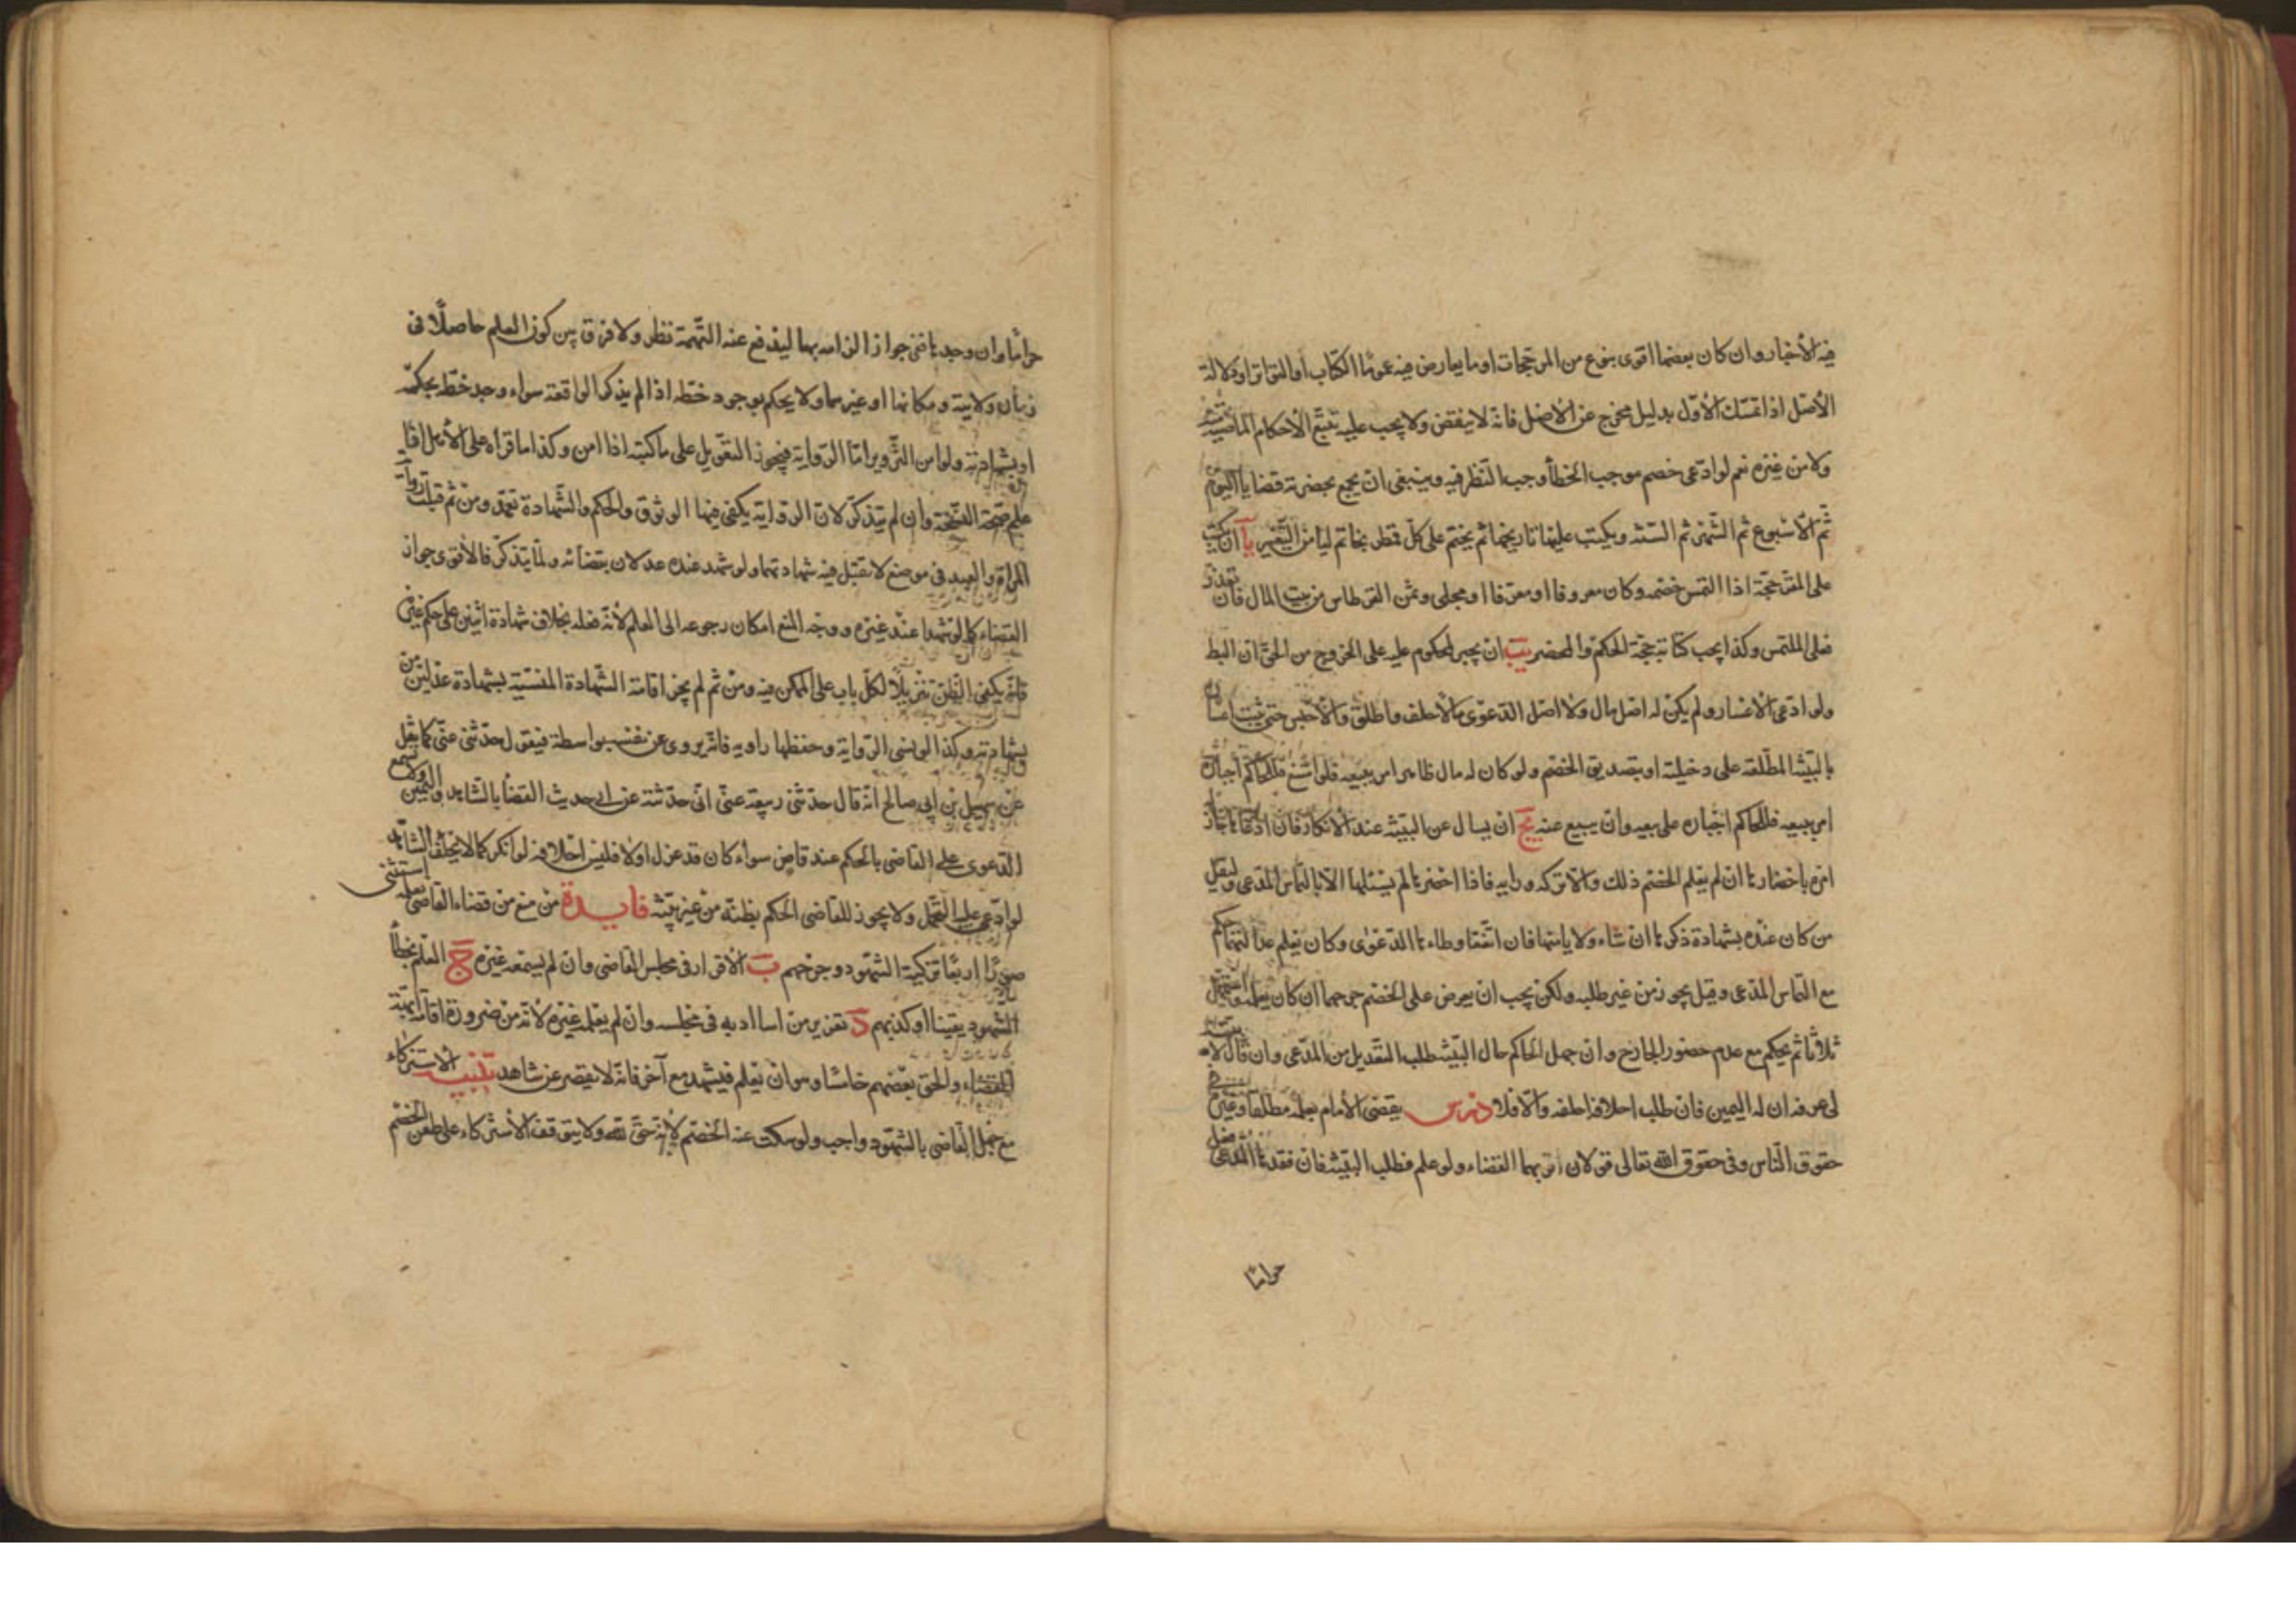 فيه الأخبار وان كان بعضها اقوى بنوع من المرجحات او ما يعارض فيه عموما الكتاب او التواتر او دلالة
الأصل اذا تمسك الأول بدليل مخرج عن الأصل فانه لا ينقض ولا يجب عليه تتبع الأحكام الماضية منه
ولا من غيره نعم لو ادعى خصم موجب الخطأ وجب النظر فيه وينبغي ان يجمع بحضرته قضايا اليوم
ثم الأسبوع ثم الشهر ثم السنة ويكتب عليها تاريخها ثم يختم على كل قمطر بخاتم ليأمن التغيير يآ ان يكتب
على المقر حجة اذا التمس خصمه وكان معروفا او معرفا او محلى وثمن القرطاس من بيت المال فان تعذر
فعلى الملتمس وكذا يجب كتابة حجة الحكم والمحضر يب ان يجبر المحكوم عليه على الخروج من الحق ان
ولو ادعى الأعسار ولم يكن له اصل مال ولا اصل الدعوى مالا حلف واطلق والا حبس حتى يثبت اعساره
بالبينة المطلعة على دخيلته او بتصديق الخصم ولو كان له مال ظاهر امر ببيعه فلو امتنع فللحاكم اجباره
امر ببيعه فللحاكم اجباره على بيعه وان يبيع عنه يج ان يسال عن البينة عند الأنكار فان ادعاها جاز
امره باحضارها ان لم يعلم الخصم ذلك والا تركه ورايه فاذا احضرها لم يسئلها الا بالتماس المدعى وليقل
من كان عنده شهادة ذكرها ان شاء ولا يامرهما فان اتفقتا وطابقا الدعوى وكان يعلم عدالتهما حكم
مع التماس المدعى وقيل يجوز من غير طلبه ولكن يجب ان يعرض على الخصم جرحهما ان كان يعلمه ويستمهل
ثلاثا ثم يحكم مع عدم حضور الجارح وان جهل الحاكم حال البينة طلب التعديل من المدعى وان قال لا بينة
لي عرفه ان له اليمين فان طلب احلافه احلفه والا فلا درس يقضى الأمام بعلمه مطلقا وغيره في
حقوق الناس وفي حقوق الله تعالى قولان اقربهما القضاء ولو علم فطلب البينة فان فقدها المدعى فعل
حراما
حراما وان وجدها ففي جواز الزامه بها ليندفع عنه التهمة نظر ولا فرق بين كون العلم حاصلا في
زمان ولايته ومكانها او غيرهما ولا يحكم بوجود خطه اذا لم يذكر الواقعة سواء وجد خطه بحكمه
او بشهادته ولو امن التزوير اما الرواية فيجوز التعويل على ما كتبه اذا امن وكذا ما قراه على الأصل اذا
علم صحة النسخة وان لم يتذكر لان الرواية يكفى فيها الوثوق والحكم والشهادة تعبد ومن ثم قبلت رواية
المراة والعبد في موضع لا تقبل فيه شهادتهما ولو شهد عنده عدلان بقضائه ولما يتذكر فالأقوى جواز
القضاء كما لو شهدا عند غيره ووجه المنع امكان رجوعه الى العلم لأنه فعله بخلاف شهادة اثنين على حكم غيره
فانه يكفى الظن تنزيلا لكل باب على الممكن فيه ومن ثم لم يجز اقامة الشهادة المنسية بشهادة عدلين من
بشهادته وكذا لو نسى الرواية وحفظها راويه فانه يروى عن نفسه بواسطة فيقول حدثني عنى كما نقل
عن سهيل بن ابي صالح انه قال حدثني ربيعة عنى انى حدثته عن ابى حديث القضا بالشاهد واليمين ولا تسمع
الدعوى على القاضى بالحكم عند قاض سواء كان قد عزل او لا فليس احلافه لو انكر كما لا يحلف الشاهد
لو ادعى عليه التحمل ولا يجوز للقاضى الحكم بظنه من غير بينة فايدة من منع من قضاء القاضى بعلمه استثنى
صورا اربعا تزكية الشهود وجرحهم ب الأقرار في مجلس القاضى وان لم يسمعه غيره ج العلم بخطأ
الشهود يقينا او كذبهم د تعزير من اسا ادبه في مجلسه وان لم يعلمه غيره لانه من ضرورة اقامة ابهة
القضاء والحق بعضهم خامسا وهو ان يعلم فيشهد مع آخر فانه لا يقصر عن شاهد تنبيه الاستزكاء
مع جهل القاضى بالشهود واجب ولو سكت عنه الخصم لانه حق لله ولا يتوقف الأستزكاء على طعن الخصم